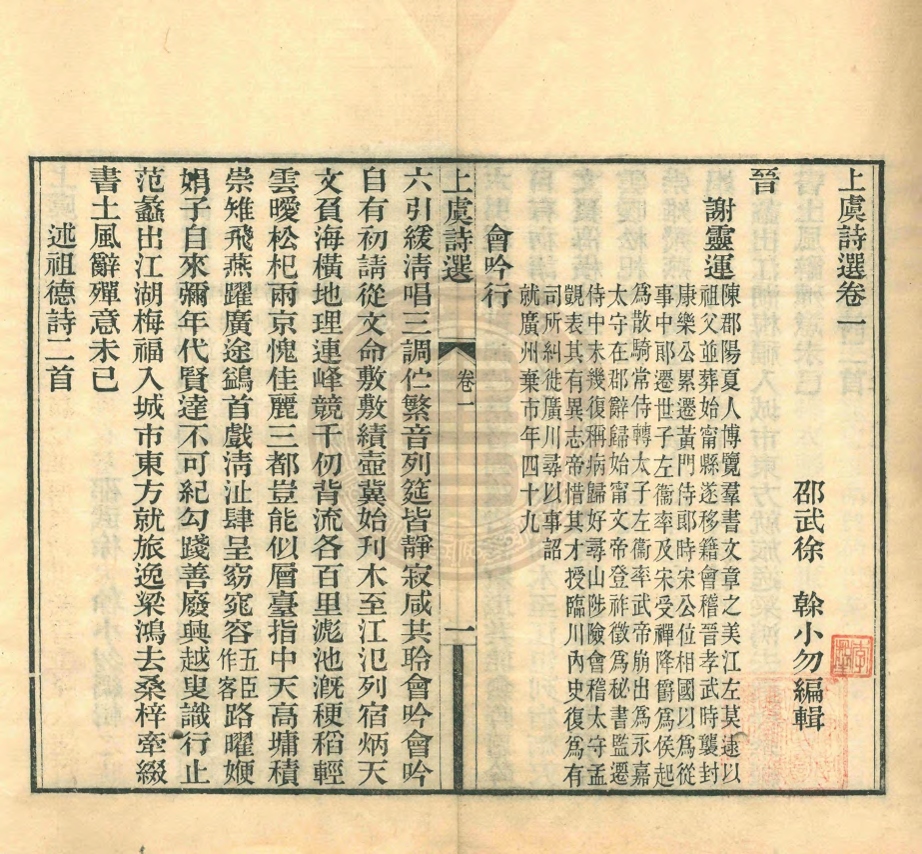 上虞詩選卷一
邵武徐　榦小勿編輯
晉
謝靈運
陳郡陽夏人博覽羣書文章之美江左莫逮以
祖父並葬始甯縣遂移籍會稽晉孝武時襲封
康樂公累遷黃門侍郎時宋公位相國以爲從
事中郎遷世子左衞率及宋受禪降爵爲侯起
爲散騎常侍轉太子左衞率武帝崩出爲永嘉
太守在郡辭歸始甯文帝登祚徵爲秘書監遷
侍中未幾復稱病歸好尋山陟險會稽太守孟
覬表其有異志帝惜其才授臨川內史復爲有
司所糾徙廣川尋以事詔
就廣州棄市年四十九
會吟行
上虞詩選
卷一
一
六引緩淸唱三調佇繁音列筵皆靜寂咸共聆會吟會吟
自有初請從文命敷敷績壺冀始刋木至江汜列宿炳天
文負海橫地理連峰競千仞背流各百里滮池漑稉稻輕
雲曖松杞兩京愧佳麗三都豈能似層臺指中天高墉積
崇雉飛燕躍廣途鷁首戲淸沚肆呈窈窕容五臣作客路曜㛹
娟子自來彌年代賢達不可紀勾踐善廢興越叟識行止
范蠡出江湖梅福入城市東方就旅逸梁鴻去桑梓牽綴
書土風辭殫意未已
述祖德詩二首